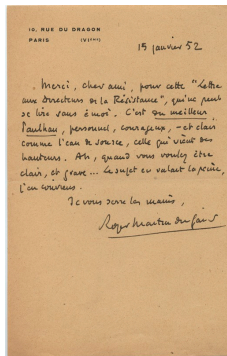 10, RUE DU DRAGON
PARIS (VIème)
15 janvier 52
Merci, cher ami, pour cette "Lettre
aux directeurs de la Résistance", qui ne peut
se lire sans émoi. C'est du meilleur
Paulhan, personnel, courageux, - et clair
comme l'eau de source, celle qui vient des
hauteurs. Ah, quand vous voulez être
clair, et grave... Le sujet en valait la peine,
j'en conviens.
Je vous serre les mains,
Roger Martin du Gard